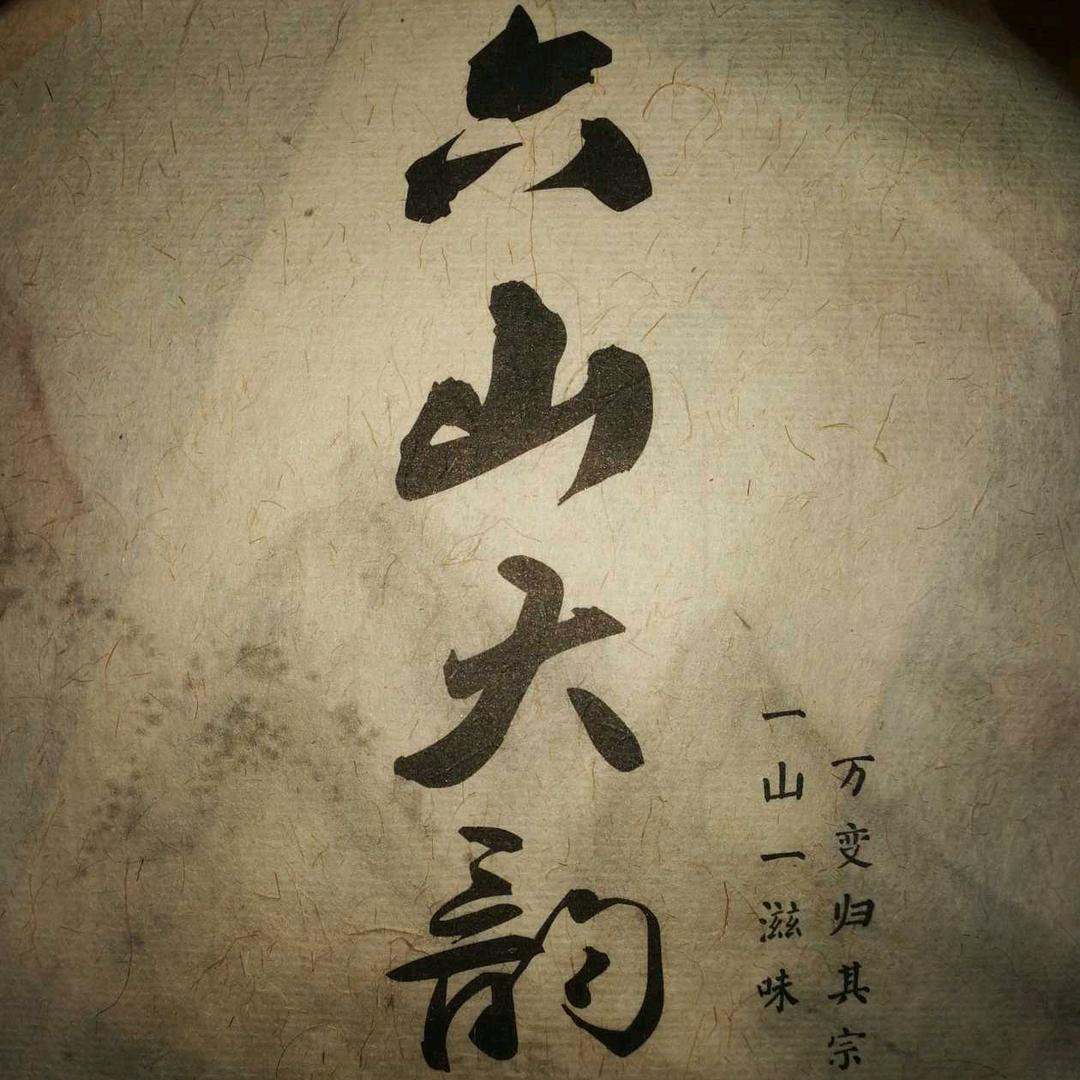 六山大韵
一山一滋味
万变归其宗